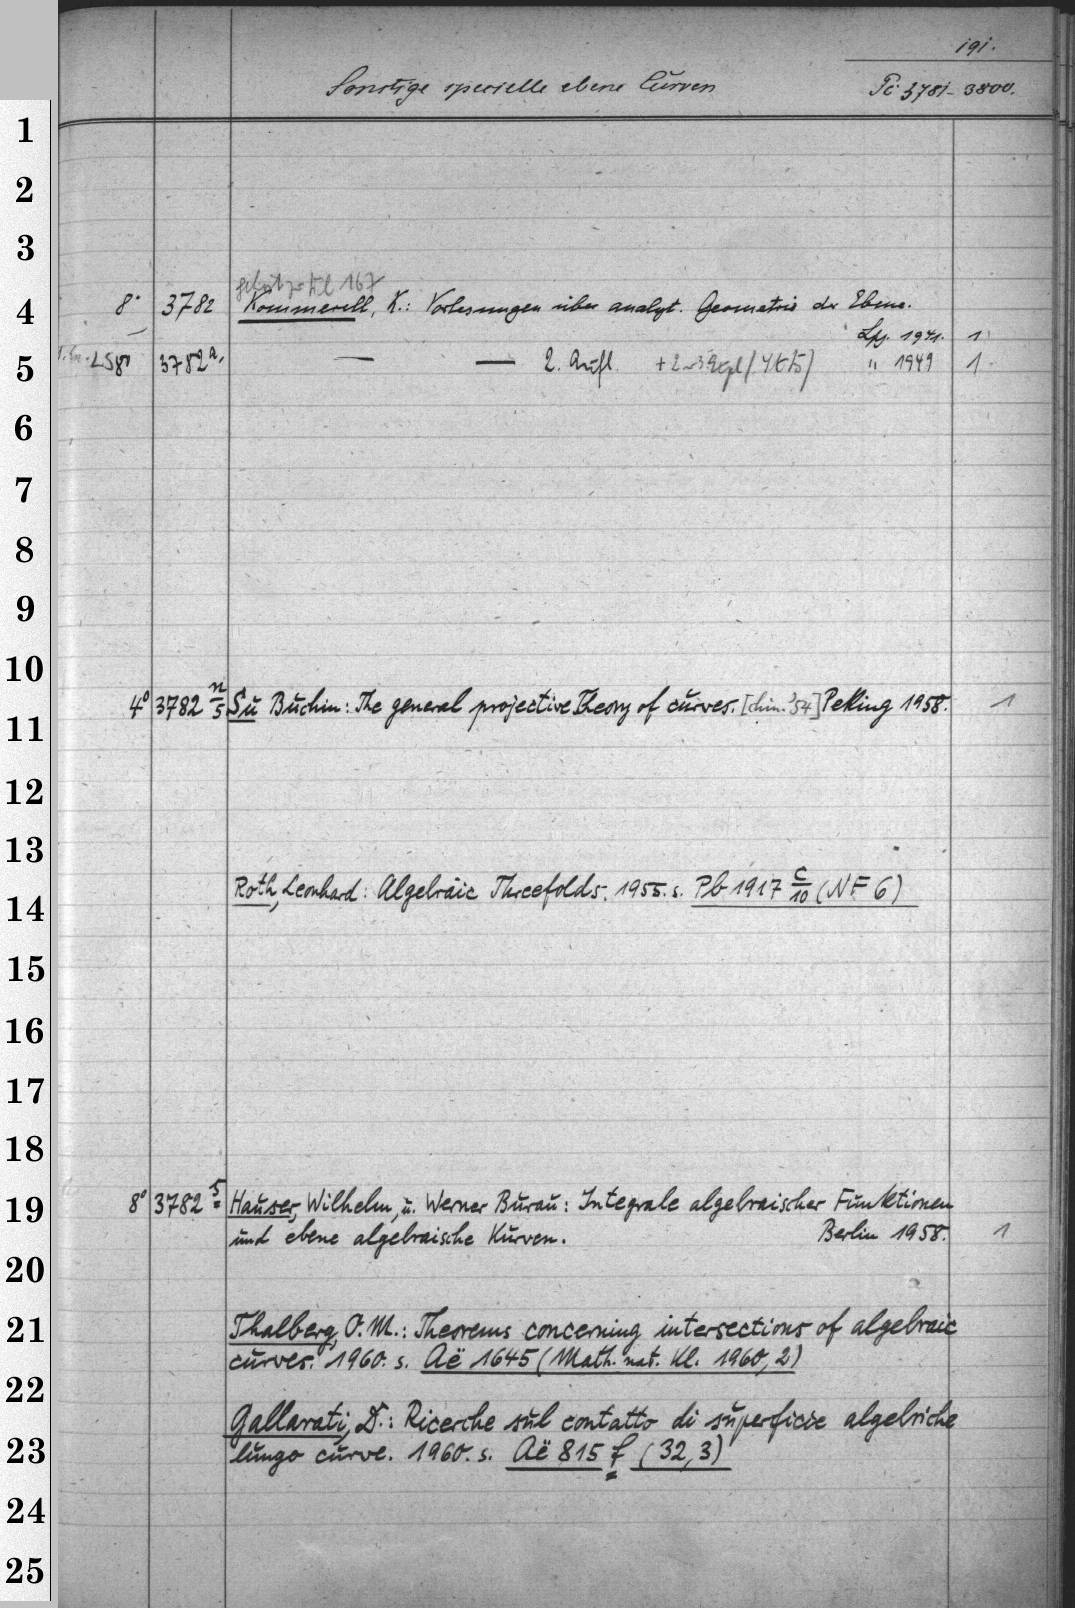 191.
Sonstige specielle ebene Curven Pc 3781-3800.
1
2
3
167
4 8° 3782 Kommerell, K.: Vorlesungen über analyt. Geometrie der Ebene.
Lpz. 1941. 1
5 LS 8° 3782a. — — 2. Aufl. " 1949 1
6
7
8
9
10
11 4° 3782 n/5 Su Buchin: The general projective Theory of curves. [chin. '54] Peking 1958. 1
12
13
14 Roth, Leonhard: Algebraic Threefolds. 1955. s. Pb 1917 c/10 (NF 6)
15
16
17
18
19 8° 3782 s Hauser, Wilhelm, u. Werner Burau: Integrale algebraischer Funktionen
und ebene algebraische Kurven. Berlin 1958. 1
20
21 Thalberg, O. M.: Theorems concerning intersections of algebraic
curves. 1960. s. Aë 1645 (Math. nat. Kl. 1960, 2)
22
Gallarati, D.: Ricerche sul contatto di superficie algebriche
23 lungo curve. 1960. s. Aë 815 f (32, 3)
24
25